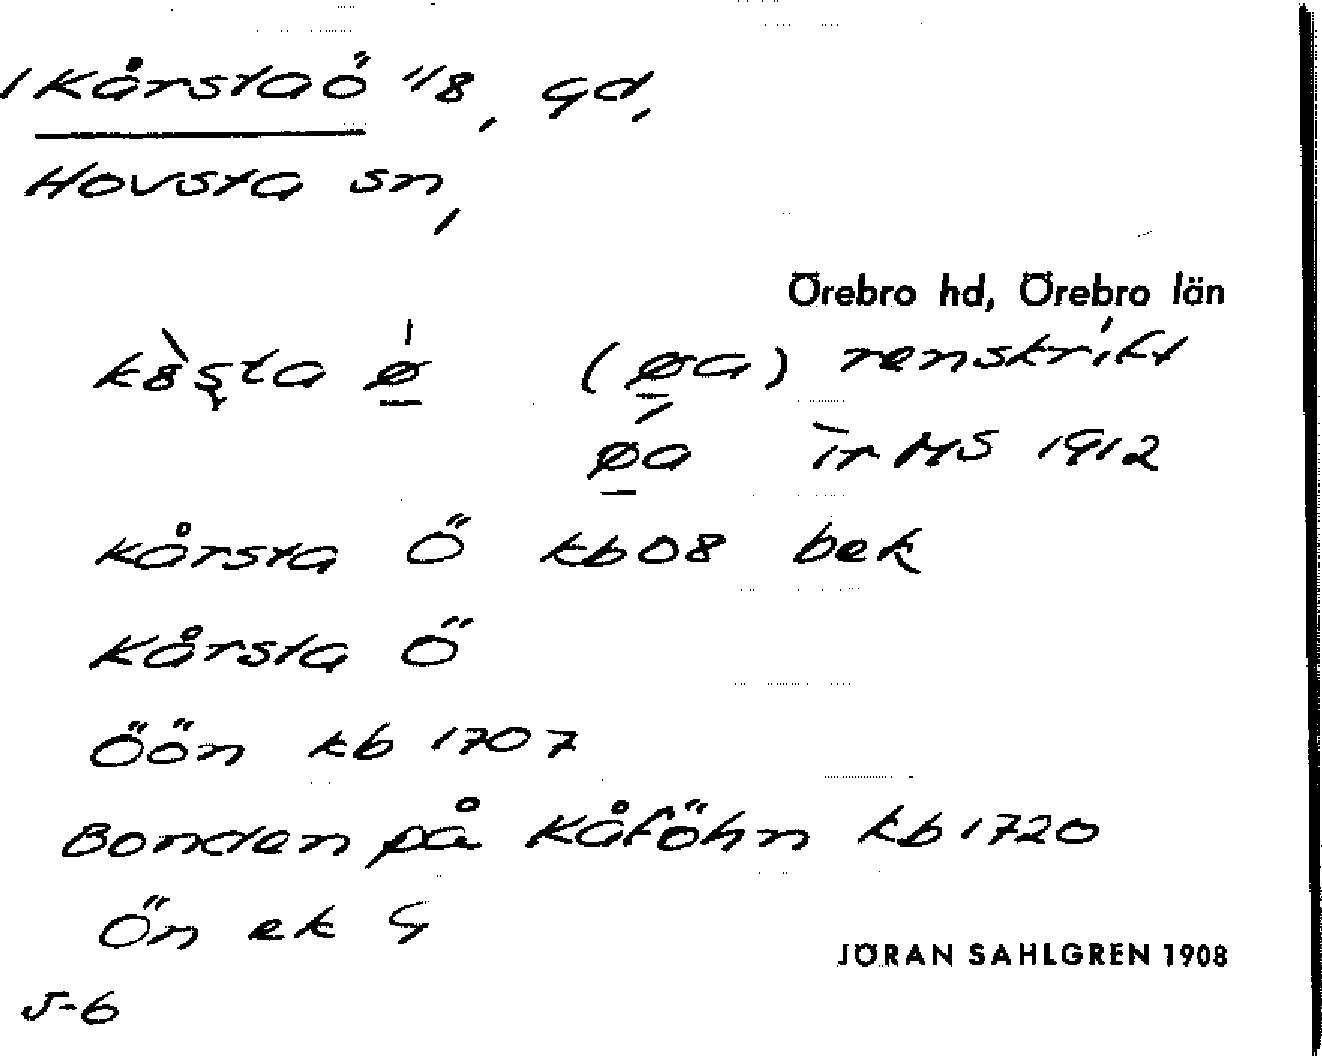 1 KårstaÖ 1/8, Gd,
Hovsta sn,
Örebro hd, Örebro län
kàs̨ta ǿ̲ (ø̲a) renskrift
ǿ̲a ìr MS 1912
kårsta Ö kb08 bek
Kårsta Ö
Öön kb 1707
Bonden på Kåföhn kb 1720
Ön ek G
JÖRAN SAHLGREN 1908
J-6